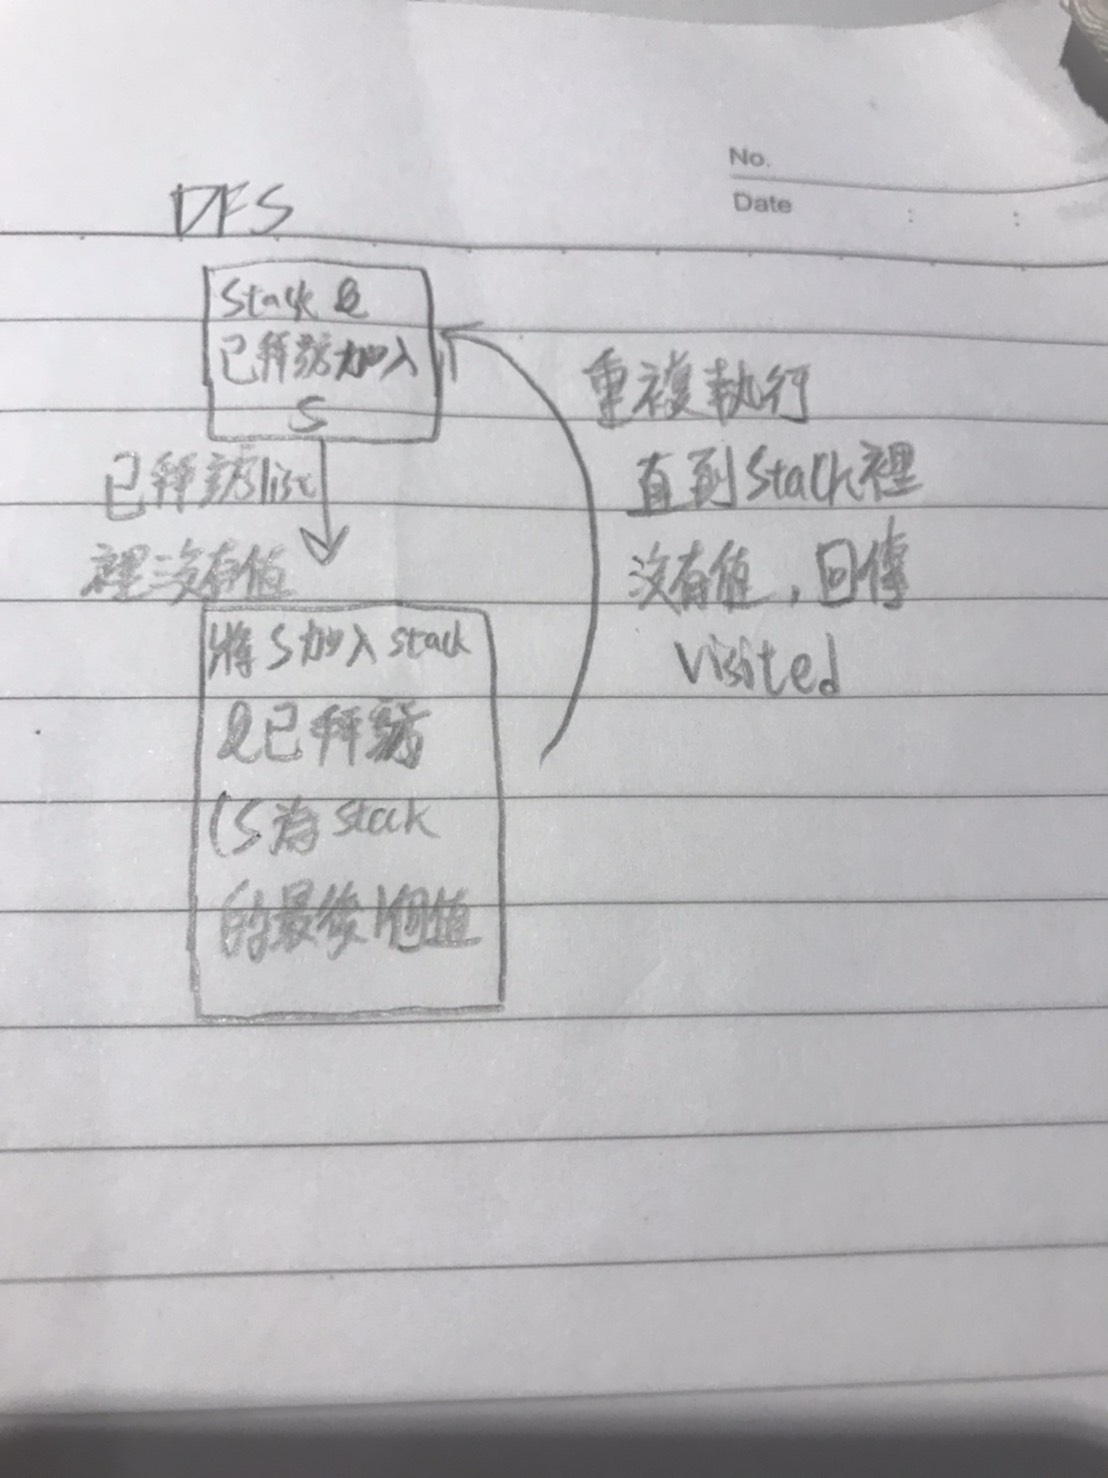 No.
Date : :
DFS
Stack &
已拜訪加入
S
已拜訪list
裡沒有值
將S加入stack
&已拜訪
(S為stack
的最後1個值
重複執行
直到Stack裡
沒有值,回傳
visited